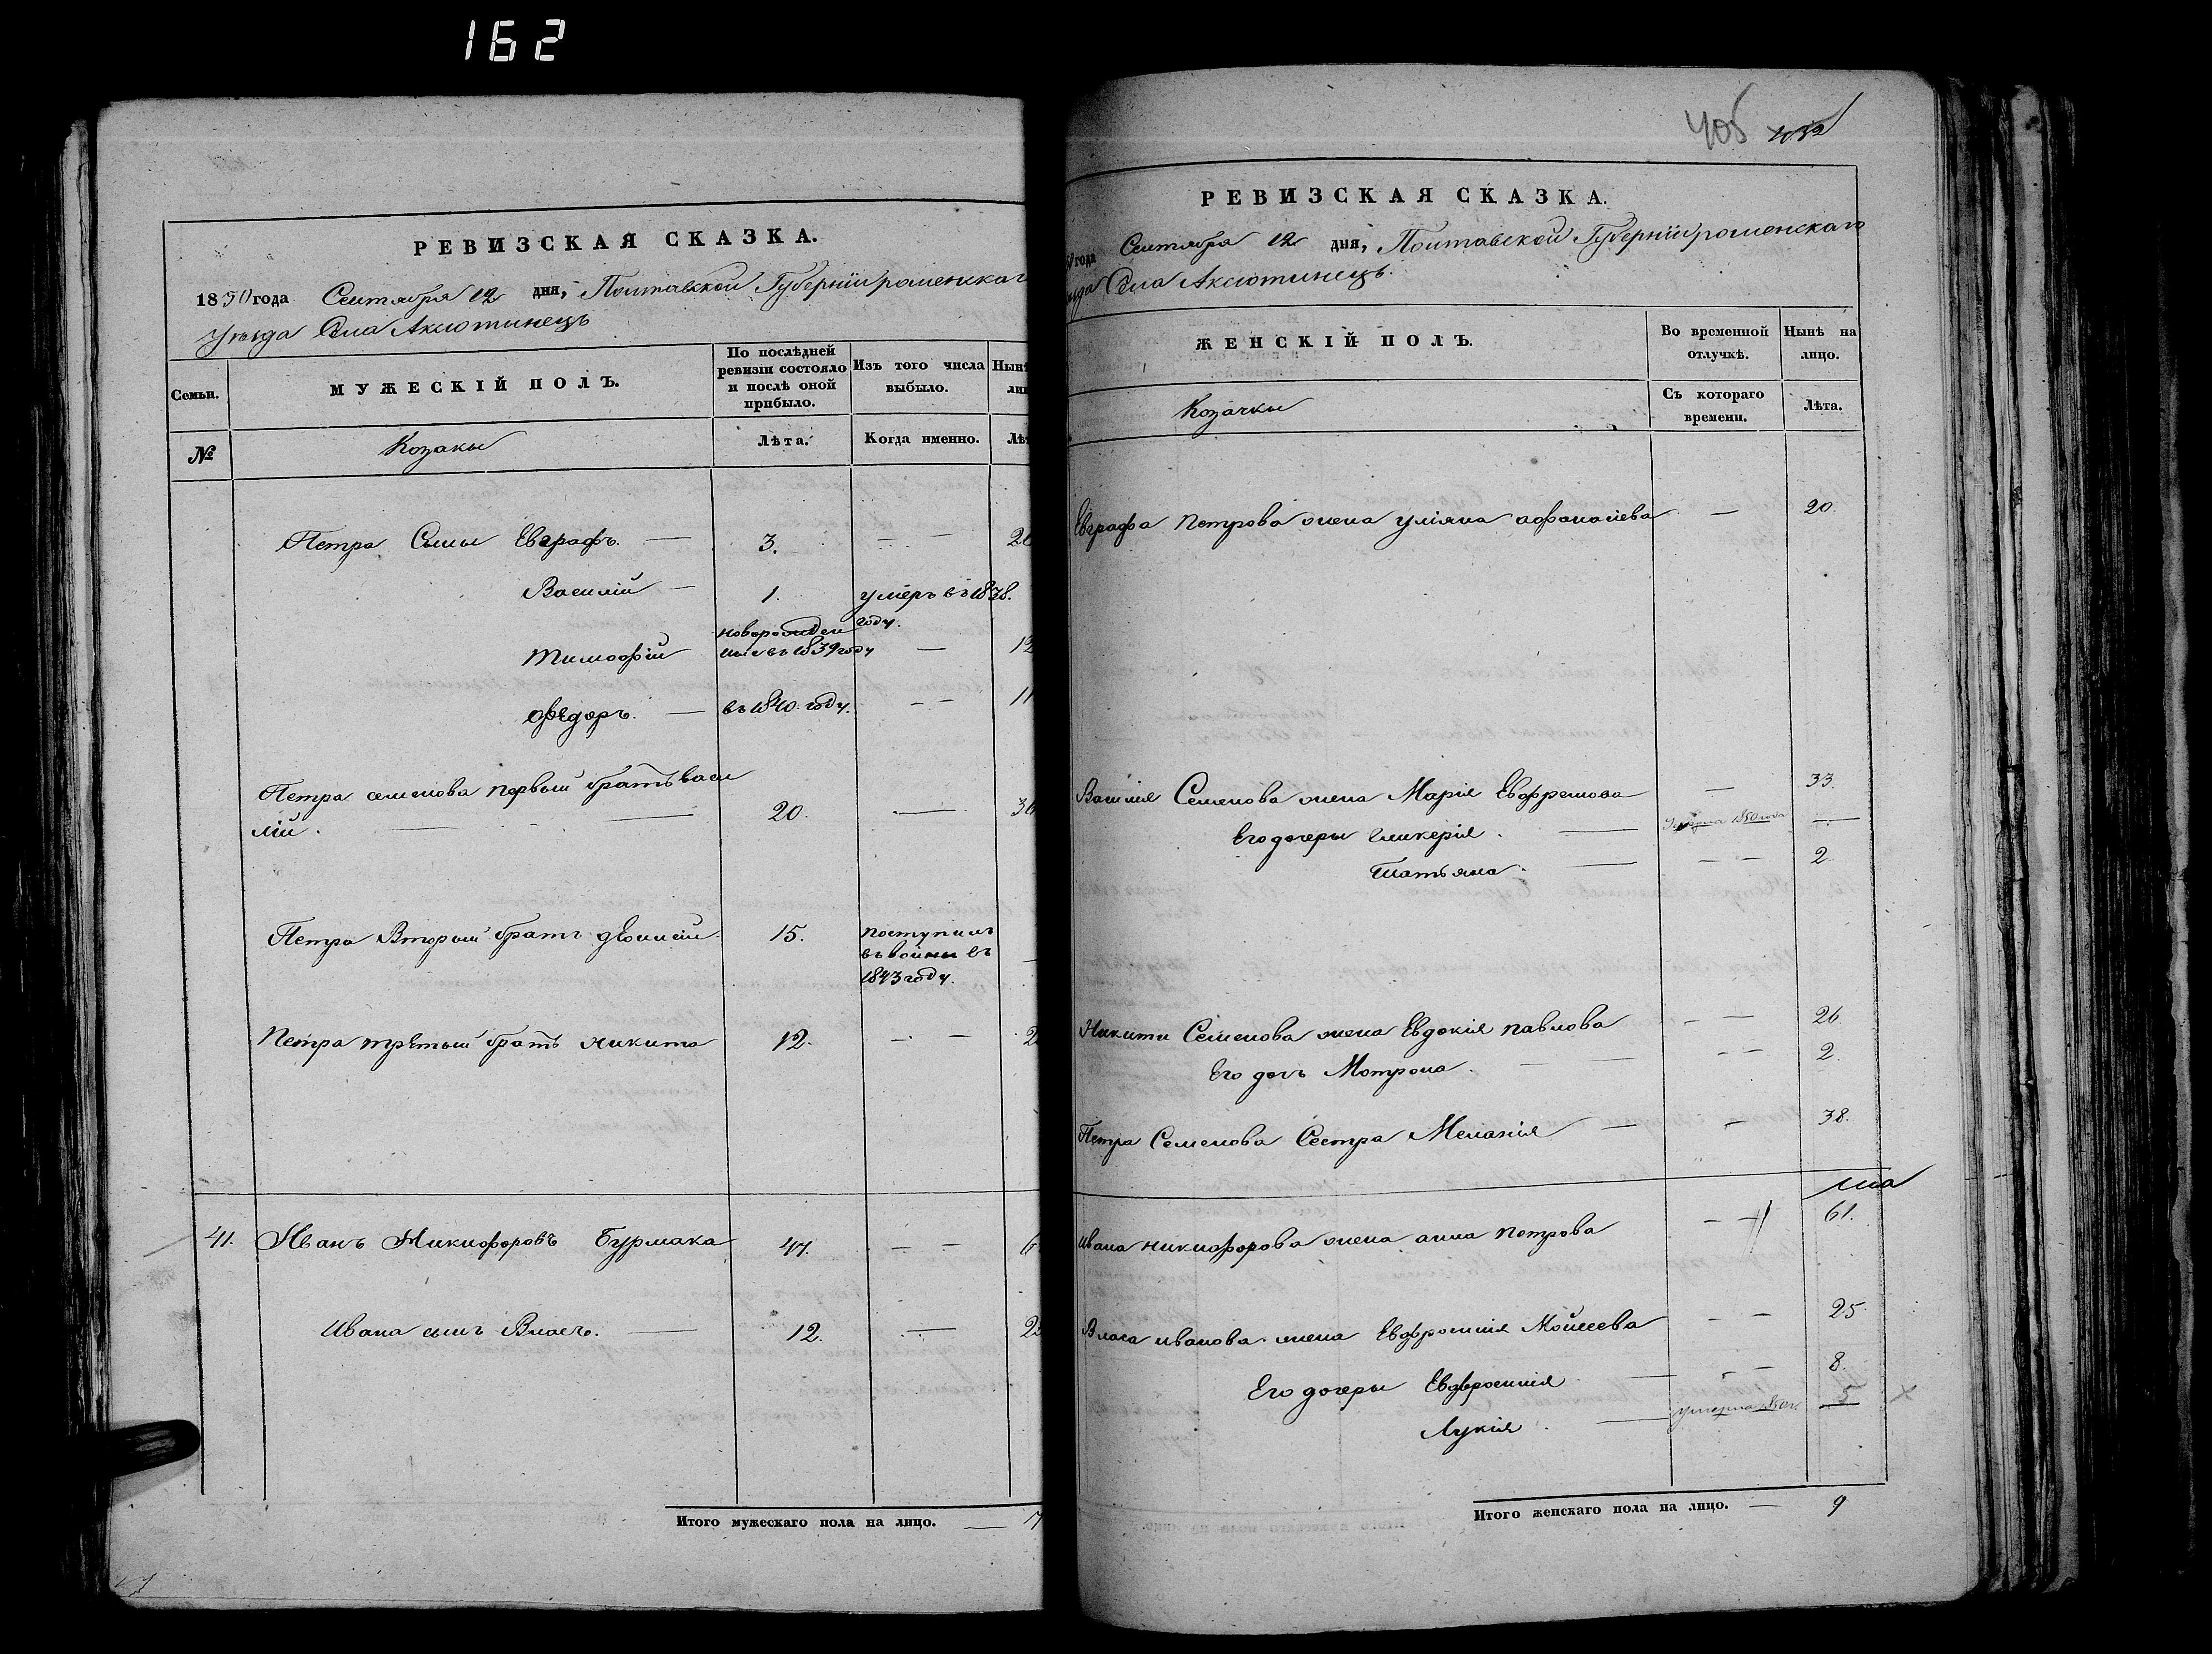 162
РЕВИЗСКАЯ СКАЗКА.
1850 года Сентября 12 дня, Полтавской Губерніи роменскаг
Уезда Села Аксютинецъ
Семьи.
МУЖЕСКІЙ ПОЛЪ.
По послѣдней ревизіи состояло и послѣ оной прибыло.
Изъ того числа выбыло.
№
Козаки
Лѣта.
Когда именно.
Петра Сыны Евграфъ. — 3. — —
Василій — 1. умеръ въ 1838.
году.
новорожден
Тимофій ные въ 1839 году — 12
Федоръ. — въ 1840 году. — — 11
Петра семенова первый братъ васи
лій. — 20. —
Петра Второй братъ дЕонисій. 15. поступилъ
въ войны въ
1843 году.
Петра третый братъ никита 12. — —
41. Иванъ Никифоровъ Бурмака 47. — —
Ивана сынъ Власъ. — 12. —
Итого мужескаго пола на лицо. —
406
РЕВИЗСКАЯ СКАЗКА.
года Сентября 12 дня, Полтавской Губерніи роменскаго
Села Аксютинецъ.
ЖЕНСКІЙ ПОЛЪ.
Во временной отлучкѣ.
Нынѣ на лицо.
Козачки
Съ котораго времени.
Лѣта.
Евграфа Петрова жена уліяна афанасіева — 20.
Василия Семенова жена Марія Евфремова — 33.
Его дочеры Гликерія. — 1850 года —
Татьяна. — — — 2.
Никити Семенова жена Евдокія павлова — — 26
Его дочь Мотрона. — — — 2.
Петра Семенова Сестра Меланія — — 38.
Ивана никифорова жена анна петрова — — 61.
Власа иванова жена Евфросинія Мойсеева — — 25.
Его дочеры Евфросинія — — — 8.
Лукія. — умерла 5
Итого женскаго пола на лицо. — 9